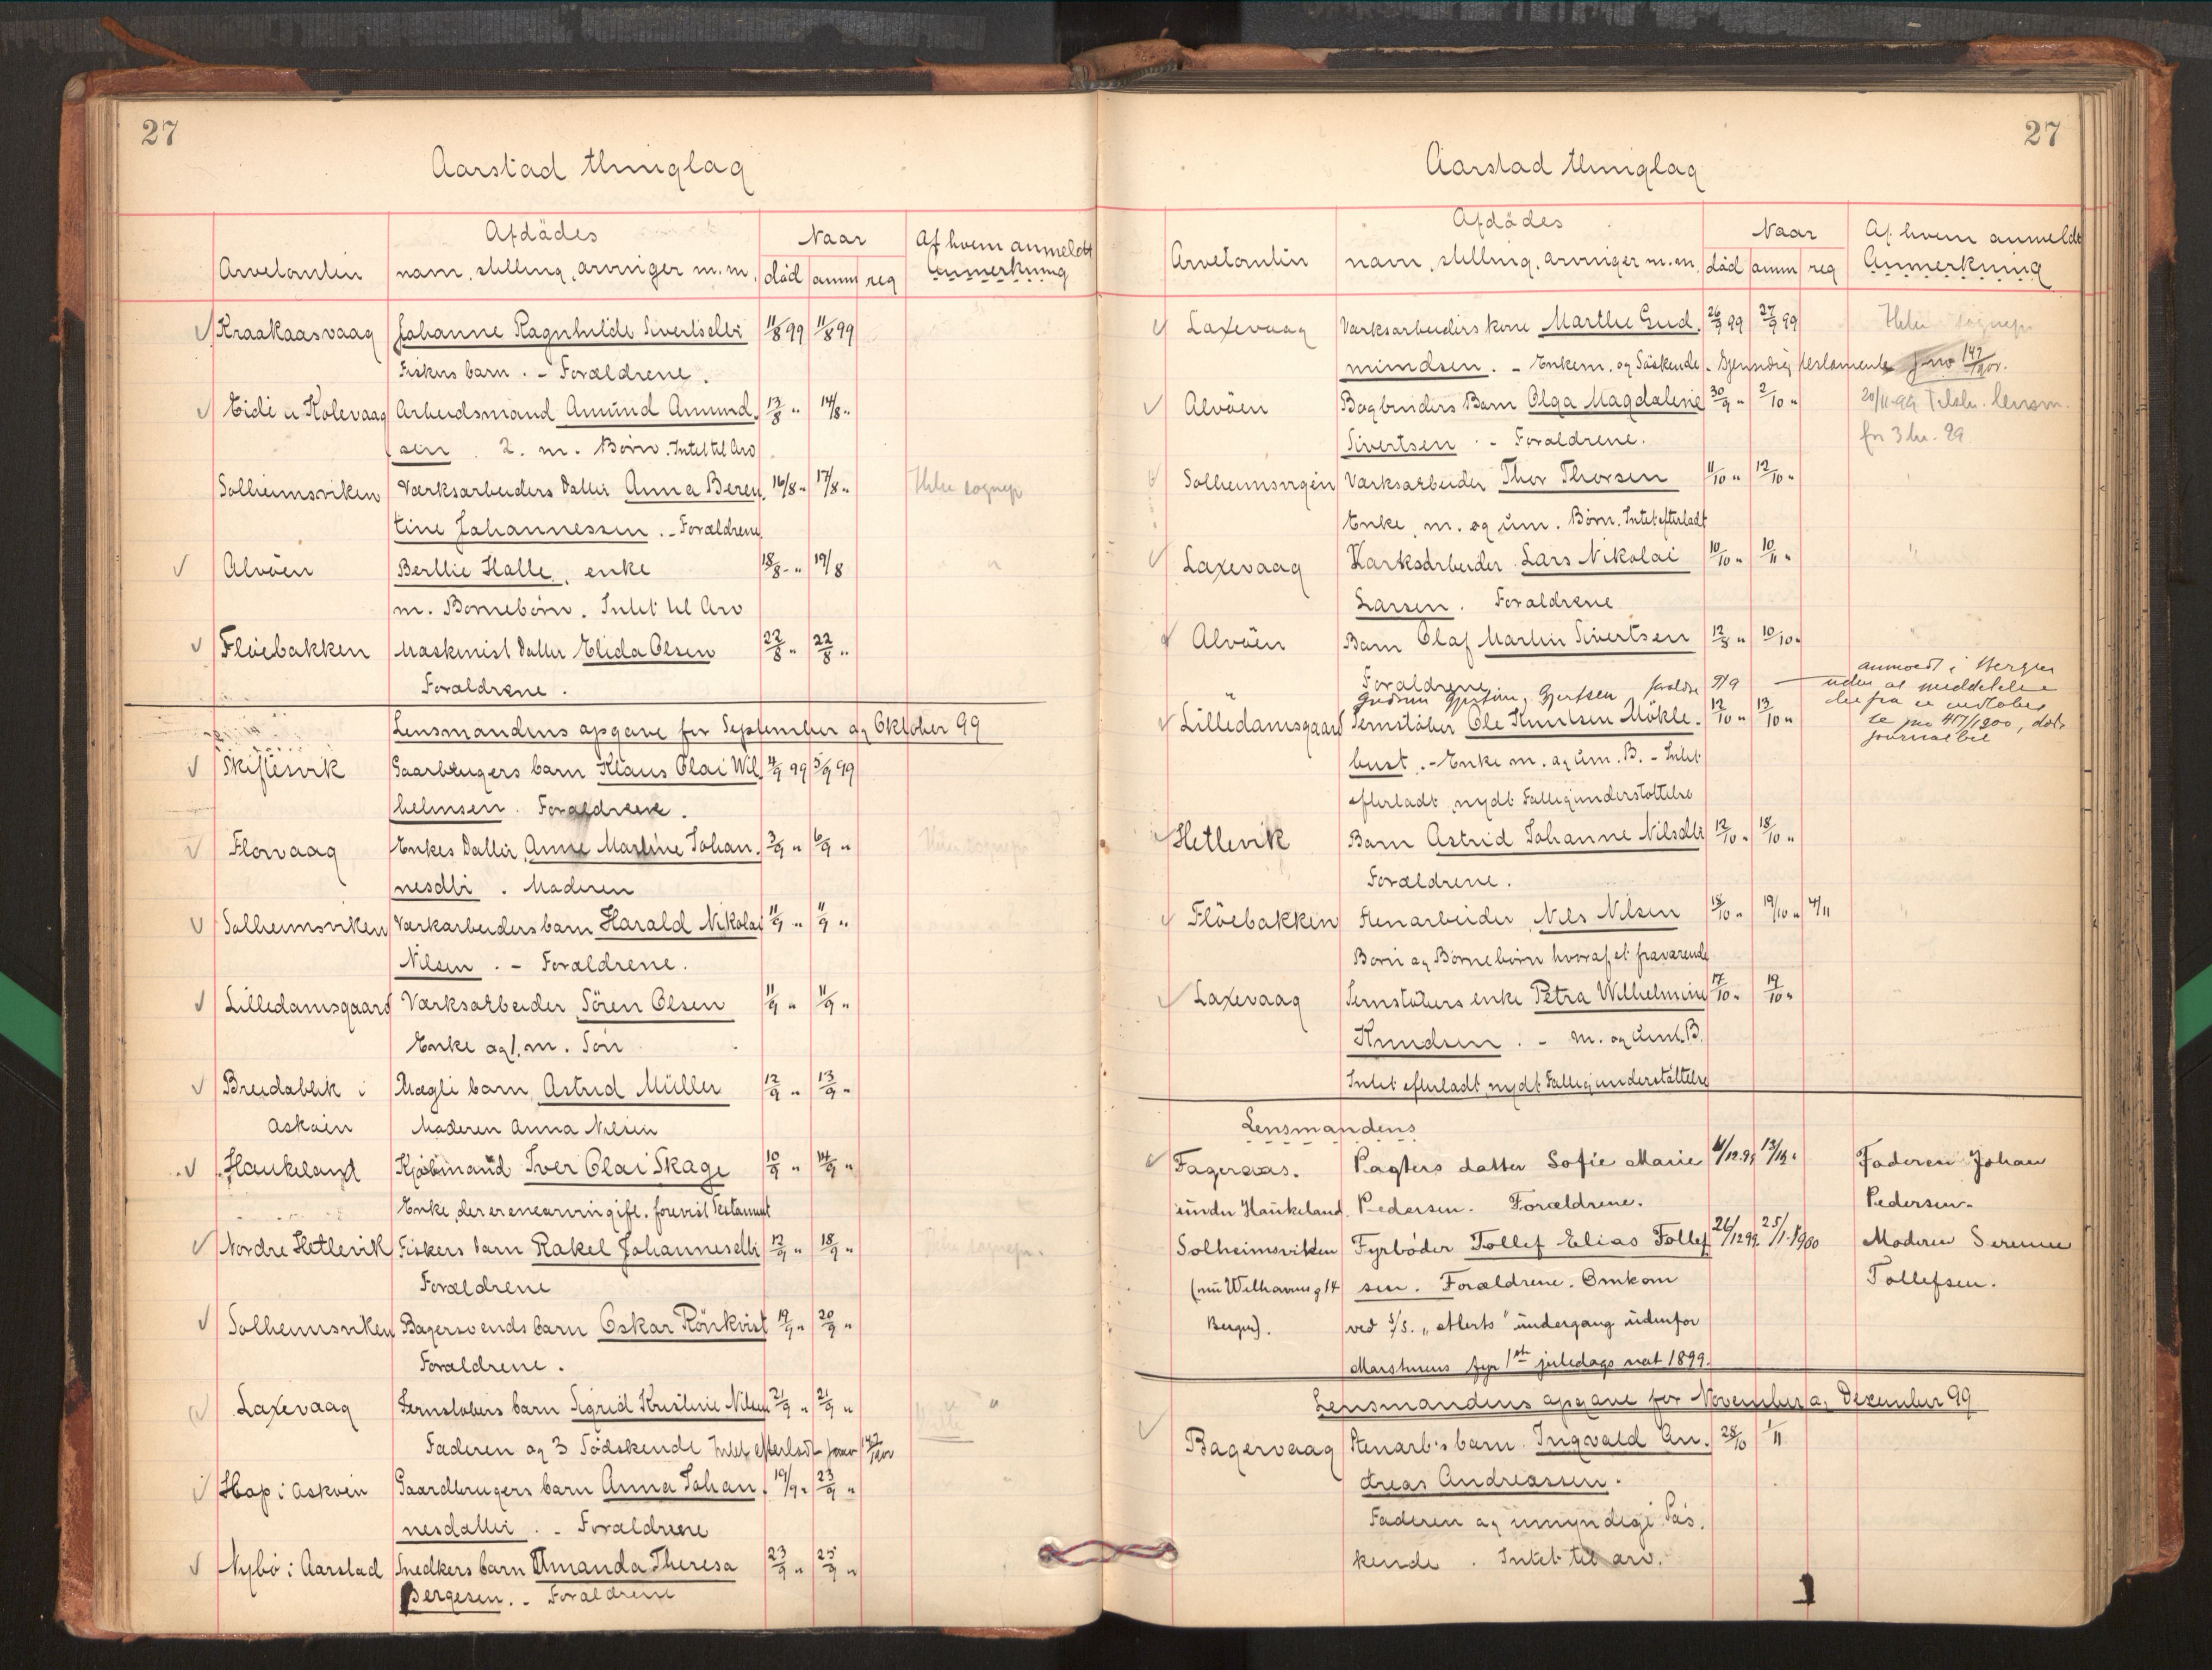 27
Aarstad thinglag
Afdödes Naar Af hvem anmeldt
Arvetomten navn, stilling, arvinger m.m. död anm reg Anmerkning
Kraakaasvaag Johanne Ragnhilde Sivertsdtr 11/8 99 11/8 99
Fiskers barn. - Forældrene.
Eide i Kolevaag Arbeidsmand Amund Amund. 13/8 " 14/8 "
sen . 2. m. Børn. Intet til Arv
Solheimsviken Værksarbeiders Datter Anna Beren. 16/8 " 17/8 " Hele sognepr
tine Johannessen . - Forældrene
Alvöen Berthe Halle, enke 18/8 - " 19/8 "
m. Børnebørn. Intet til Arv
Flöebakken Maskinist Datter Elida Olsen 22/8 " 22/8 "
Forældrene.
Lensmandens opgave for September og Oktober 99
Skiftesvik Gaarbrugers barn Klaus Olai Wil 4/9 99 5/9 99
helmsen. Forældrene.
Florvaag Enkes Datter, Anne Martine Johan. 3/9 " 6/9 "
nesdtr . Moderen
Solheimsviken Værkarbeiders barn Harald Nikolai 11/9 " 11/9 "
Nilsen . - Forældrene.
Lilledamsgaard Værksarbeider Sören Olsen 11/9 " 11/9 "
Enke og 1. m. Sön
Breidablik i Uægte barn Astrid Müller 12/9 " 13/9 "
Asköin Moderen Anna Nilsen
Haukeland Kjøbmand Iver Olai Skage 10/9 " 14/9 "
Enke, der er enearving ifl. forevist Testament
Nordre Hetlevik Fiskers barn Rakel Johannesdtr 12/9 " 18/9 "
Forældrene
Solheimsviken Bagersvends barn Oskar Rönkvist 19/9 " 20/9 "
Forældrene.
Laxevaag Jernstøbers barn Sigrid Kristine Nilsen 21/9 " 21/9 " "
Faderen og 3 Sødskende Intet efterladt
Hop i Asköen Gaardbrugers barn Anna Johan. 19/9 " 23/9 "
nesdatter . - Forældrene
Nybö i Aarstad Snedkers barn Amanda Theresa 23/9 " 25/9 "
Bergesen. - Forældrene
27
Aarstad thinglag
Afdödes Naar Af hvem anmeldt
Arvetomten navn, stilling, arvinger m.m. död anm reg Anmerkning
Laxevaag Værksarbeiders kone Marthe Gud. 26/9 99 27/9 99
mundsen. - Enkem. og Söskende. - Gjensidig testamente
Alvöen Bogbinders Barn Olga Magdalene 30/9 " 2/10 " 20/11-99 Telstr. lensm.
Sivertsen . - Forældrene.
Solheimsvigen Værksarbeider Thor Thorsen 11/10 " 12/10 "
Enke, m. og um. Børn. Intet efterladt
Laxevaag Værksarbeider Lars Nikolai 10/10 " 10/11 " "
Larsen. Forældrene
Alvöen Barn Olaf Martin Sivertsen 12/8 " 10/10 "
Forældrene
" Gudrun Gjertine Gjertsen forældre 9/9
Lilledamsgaard Jernstöber Ole Knutsen Mökle. 12/10 " 13/10 "
bust. - Enke m. og um. B. - Intet
efterladt, nydt Fattigunderstøttelse
Hetlevik Barn Astrid Johanne Nilsdtr 12/10 " 18/10 "
Forældrene.
Flöebakken Stenarbeider Nils Nilsen 15/10 " 19/10 " 4/11
Børn og Børnebørn hvoraf et fraværende
Laxevaag Jernstöbers enke Petra Wilhelmine 17/10 " 19/10 "
Knudsen . - m. og um. B.
Intet efterladt, nydt Fattigunderstøttelse
Lensmandens
Fageraas. Pagters datter Sofie Marie 6/12.99 13/12 " Faderen Johan
under Haukeland Pedersen. Forældrene. Pedersen.
Solheimsviken Fyrbøder Tollef Elias Tollef 26/12 99. 25/1 - 1900 Moderen Serine
(nu Welhavensg 14 sen. Forældrene. Omkom Tollefsen.
Bergen). ved s/s. undergang udenfor
Marstenens fyr 1ste juledags nat 1899.
Lensmandens opgave for November og Dezember 99
Bagervaag Stenarb's barn Ingvald An. 28/10 1/11
dreas Andreassen.
Faderen og umyndige Søs.
kende . Intet til arv.
1